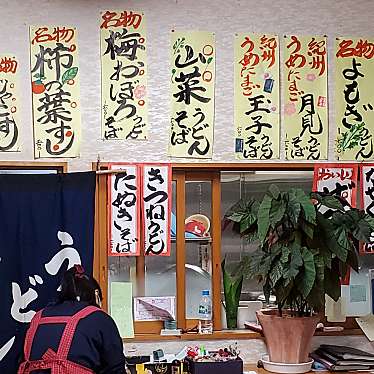 名物
柿の葉ずし
名物
梅おぼろそば
山菜
うどん
そば
紀州
うめたまご
玉子
うどん
そば
紀州
うめたまご
月見
うどん
そば
名物
よもぎ
うどん
そば
たぬきそば
きつねうどん
うどん